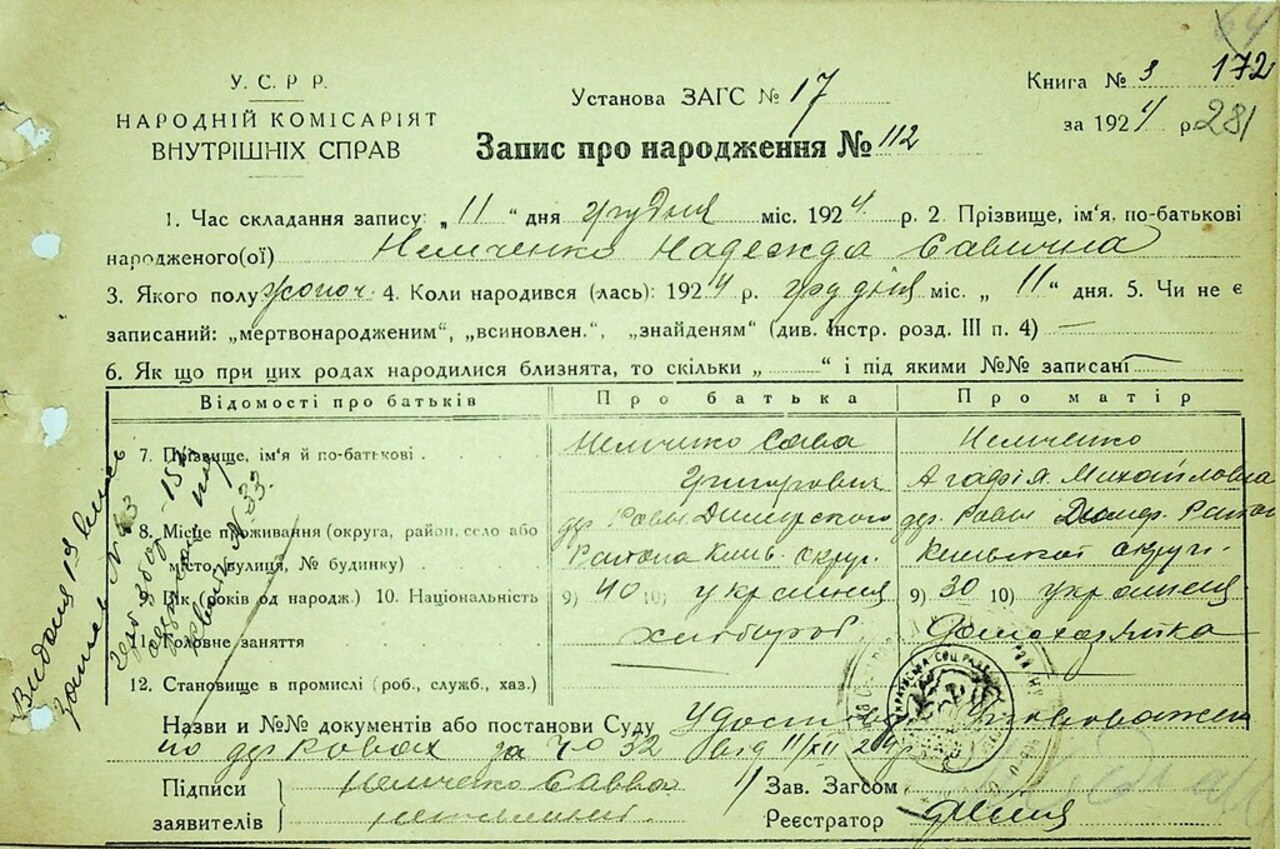 64
У. С. Р Р.
НАРОДНІЙ КОМІСАРІЯТ
ВНУТРІШНІХ СПРАВ
Установа ЗАГС № 17
Запис про народження № 112
Книга № 3 172
за 1924 р. 281
1. Час складання запису: „11“ дня грудня міс. 1924 р. 2. Прізвище, ім'я, по-батькові
народженого(ої) Немченко Надежда Савична
3. Якого полу жоноч. 4. Коли народився (лась): 1924 р. грудня міс. „11“ дня. 5. Чи не є
записаний: „мертвонародженим“, „всиновлен.“, „знайденям“ (див. Інстр. розд. III п. 4) —
6. Як що при цих родах народилися близнята, то скільки „ “ і під якими №№ записані —
Відомості про батьків Про батька Про матір
7. Прізвище, ім'я й по-батькові Немченко Сава Григорович Немченко Агафія Михайловна
8. Місце проживання (округа, район, село або
місто, вулиця, № будинку)
дер. Ровы Димерского
Района Киів. округ.
дер. Ровы Димер. Район
Киівскоі округи.
9. Вік (років од народж.) 10. Національність 9) 40 10) украинця 9) 30 10) украинця
11. Головне заняття хлібороб. Домохазяйка
12. Становище в промислі (роб., служб., хаз.)
Назви и №№ документів або постанови Суду Удостов. Уповноважен
по дер Ровах за № 32 від 11/XII 24 р.
Підписи
заявителів
Немченко Савва
неписьменый.
Зав. Загсом
Реєстратор
№ 33.